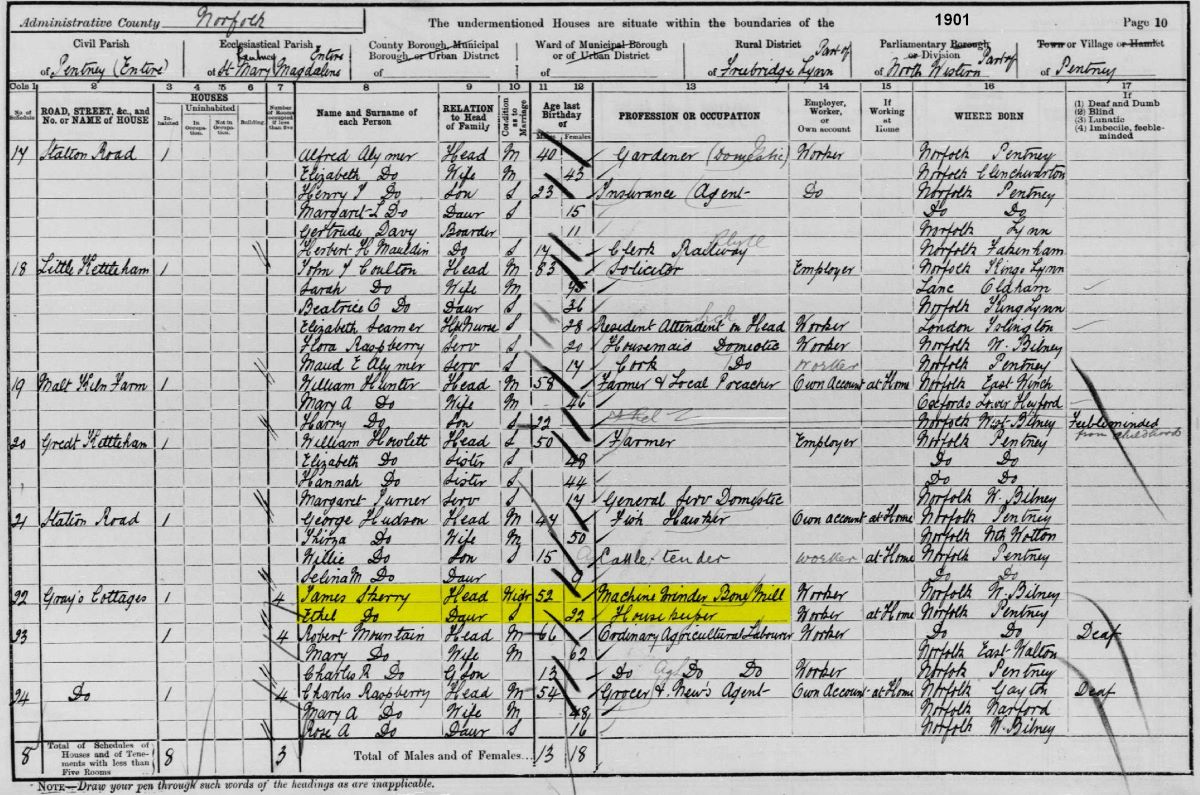 Administrative County Norfolk The undermentioned Houses are situate within the boundaries of the 1901 Page 10
Civil Parish Ecclesiastical Parish County Borough, Municipal Borough, or Urban District Ward of Municipal Borough or of Urban District Rural District Parliamentary Borough or Division Town or Village or Hamlet
of Pentney (Entire) of St Mary Magdalene Pentney Entire of of of Freebridge Lynn Part of of North Western Part of of Pentney
Cols 1 2 3 4 5 6 7 8 9 10 11 12 13 14 15 16 17
No. of Schedule ROAD, STREET, &c., and No. or NAME of HOUSE HOUSES Inhabited Uninhabited In Occupation. Not in Occupation. Building. Number of Rooms occupied if less than five Name and Surname of each Person RELATION to Head of Family Condition as to Marriage Age last Birthday of Males Females PROFESSION OR OCCUPATION Employer, Worker, or Own account If Working at Home WHERE BORN If (1) Deaf and Dumb (2) Blind (3) Lunatic (4) Imbecile, feeble-minded
17 Station Road 1 Alfred Alymer Head M 40 Gardener (Domestic) Worker Norfolk Pentney
Elizabeth Do Wife M 43 Norfolk Clenchwarton
Henry J Do Son S 23 Insurance Agent Do Norfolk Pentney
Margaret L Do Daur S 15 Do Do
Gertrude Davy Boarder 11 Norfolk Lynn
Herbert H Mauldin Do S 17 Clerk Railway Norfolk Fakenham
18 Little Kettleham 1 John J Coulton Head M 83 Solicitor Employer Norfolk Kings Lynn
Sarah Do Wife M Lanc Oldham
Beatrice C Do Daur S 36 Norfolk King Lynn
Elizabeth Seamer Nurse S 28 Resident Attendent on Head Worker London Islington
Flora Raspberry Serv S 20 Housemaid Domestic Worker Norfolk W. Bilney
Maud E Alymer Serv S 17 Cook Do Worker Norfolk Pentney
19 Malt Kiln Farm 1 William Hunter Head M 58 Farmer & Local Preacher Own Account at Home Norfolk East Winch
Mary A Do Wife M 46 Oxfords Lower Heyford
Harry Do Son S 22 Norfolk West Bilney Feebleminded from childhood
20 Great Kettleham 1 William Howlett Head S 50 Farmer Employer Norfolk Pentney
Elizabeth Do Sister S 48 Do Do
Hannah Do Sister S 44 Do Do
Margaret Turner Serv S 17 General Serv Domestic Norfolk W. Bilney
21 Station Road 1 George Hudson Head M 47 Fish Hawker Own account at Home Norfolk Pentney
Thirza Do Wife M 50 Norfolk Nth Wotton
Willie Do Son S 15 Cattle tender worker at Home Norfolk Pentney
Selina M Do Daur 9 Do Do
22 Gray's Cottages 1 4 James Skerry Head Widr 52 Machine Minder Bone Mill Worker Norfolk W. Bilney
Ethel Do Daur S 22 House keeper Worker at Home Norfolk Pentney
23 1 4 Robert Mountain Head M 66 Ordinary Agricultural Labourer Worker Do Do Deaf
Mary Do Wife M 62 Norfolk East Walton
Charles R Do G Son 13 Do Do Do Worker Norfolk Pentney
24 Do 1 4 Charles Raspberry Head M 54 Grocer & New's Agent Own Account at Home Norfolk Gayton Deaf
Mary A Do Wife M 48 Norfolk Narford
Rose A Do Daur S 16 Norfolk W. Bilney
8 Total of Schedules of Houses and of Tenements with less than Five Rooms 8 3 Total of Males and of Females... 13 18
NOTE—Draw your pen through such words of the headings as are inapplicable.